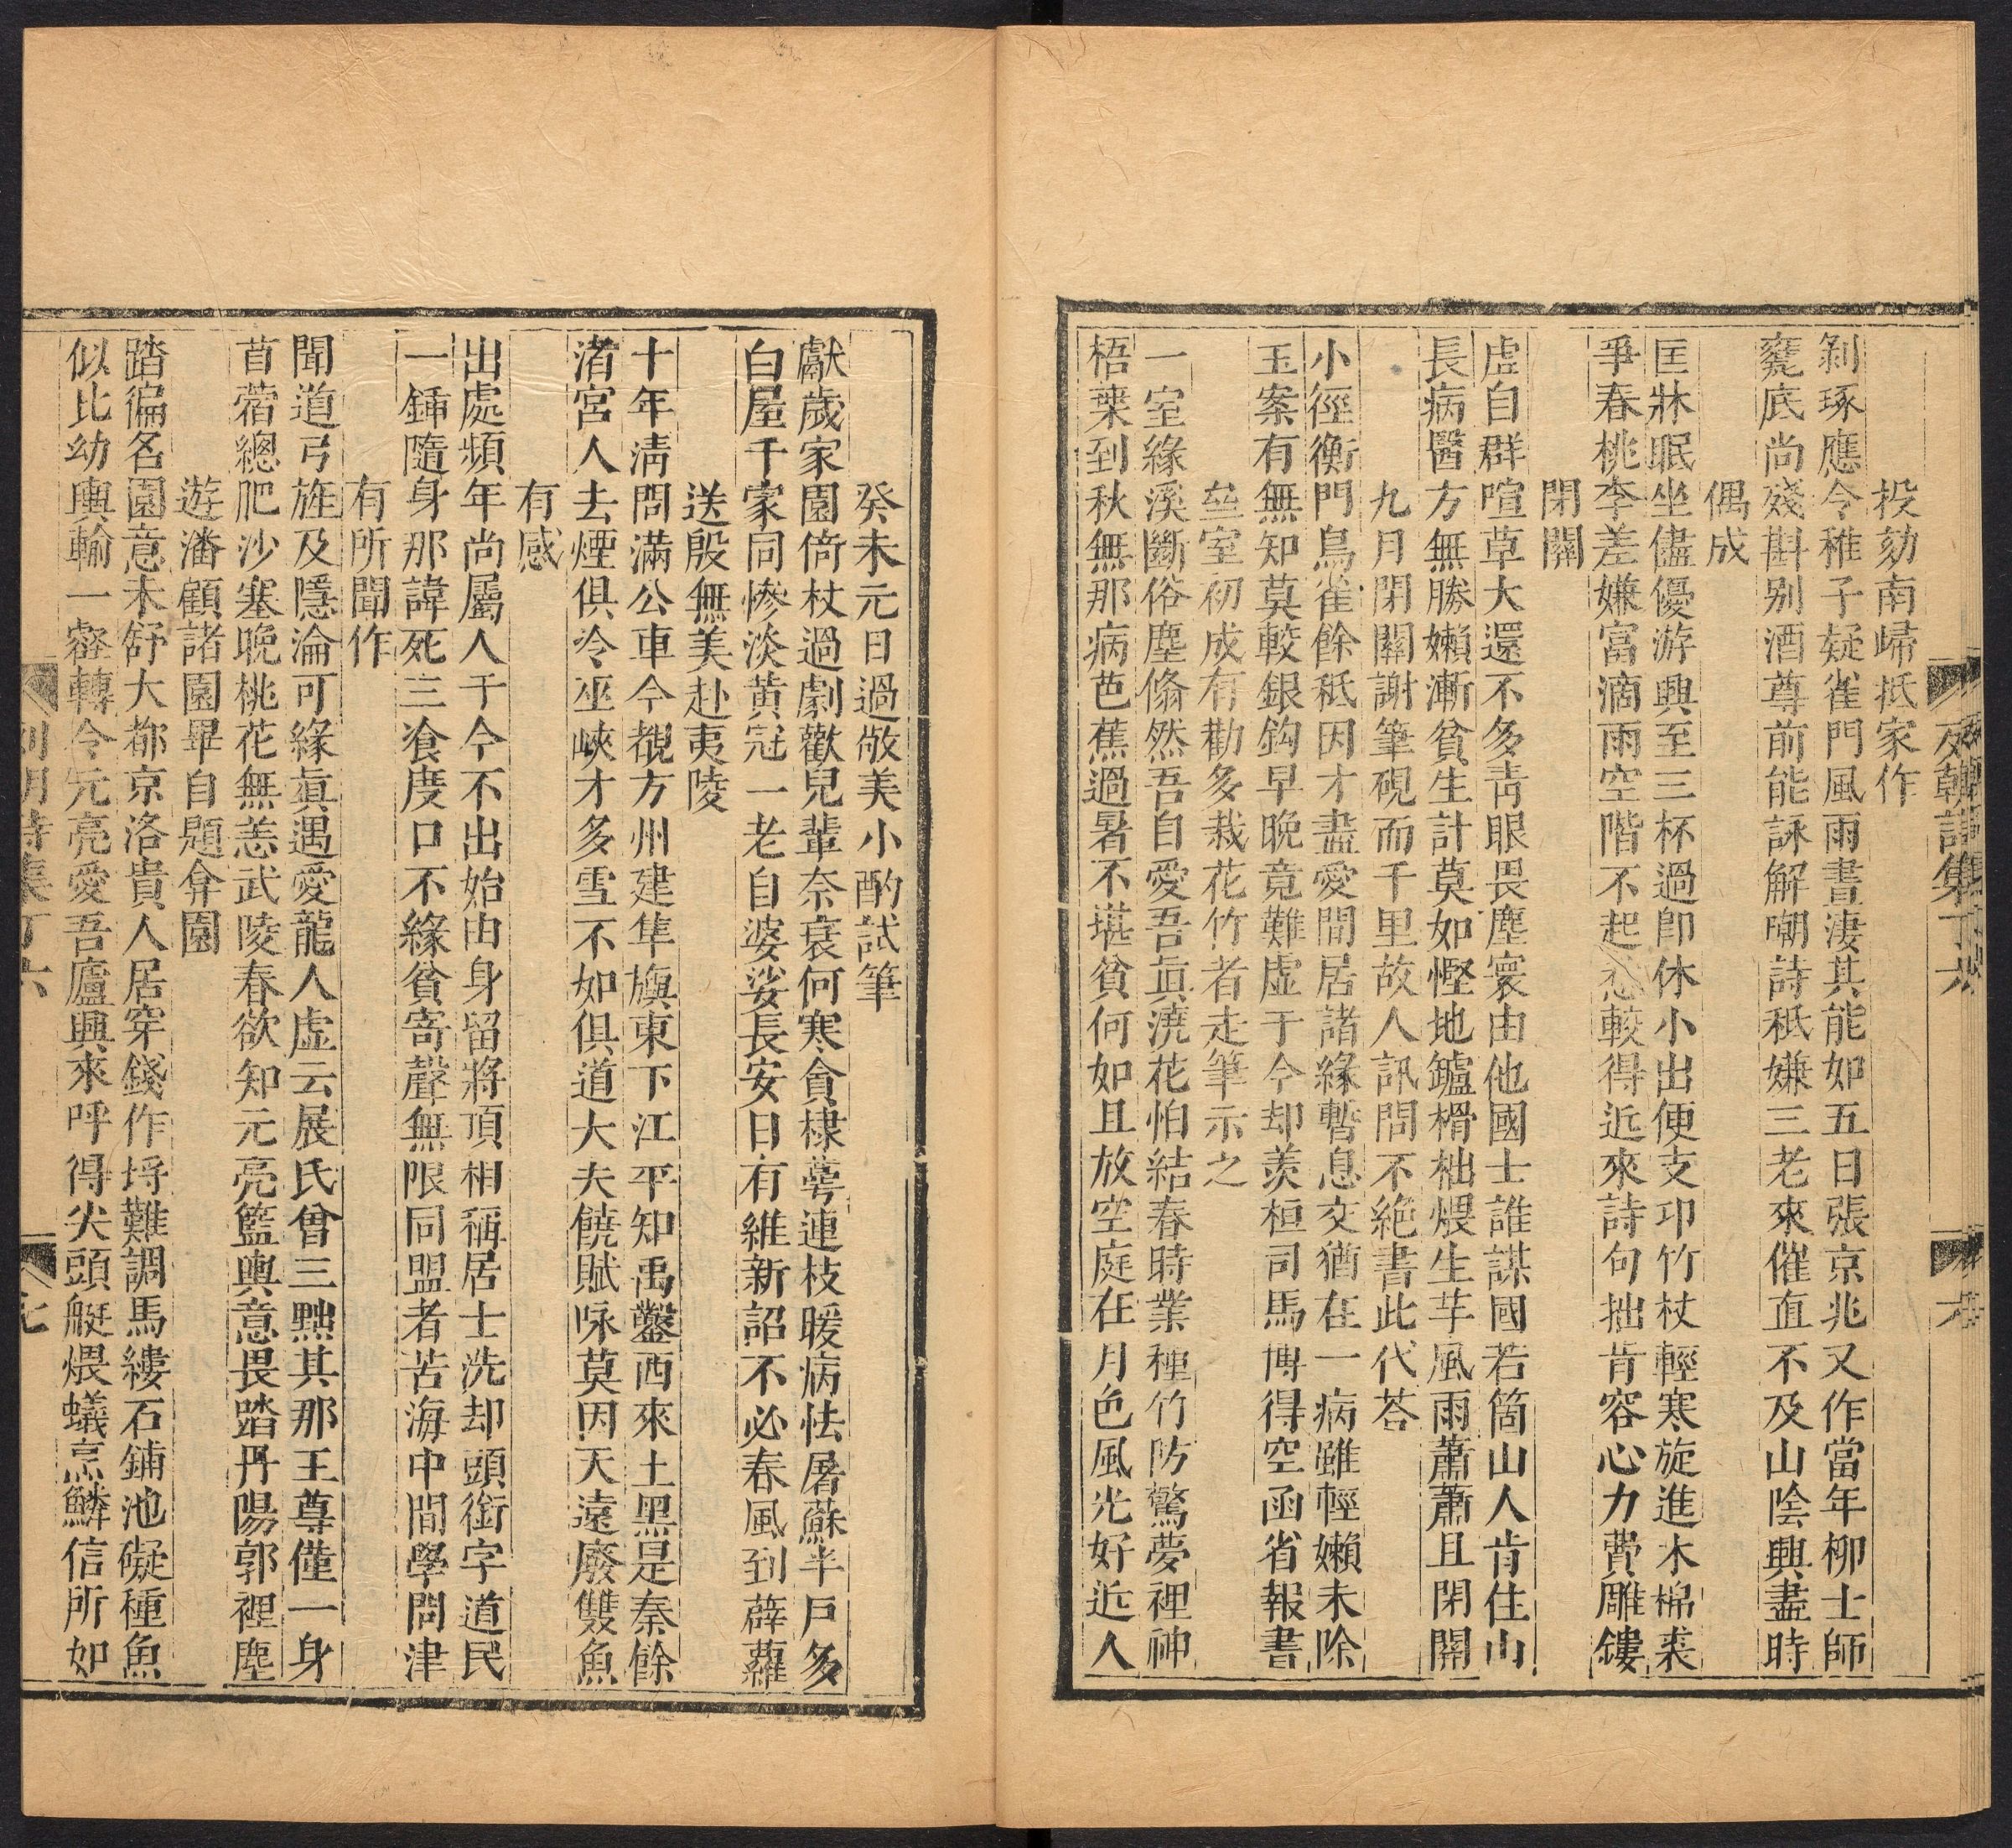 投劾南歸抵家作
剝琢應令稚子疑雀門風雨晝淒其能如五日張京兆又作當年柳士師
甕底尚殘斟別酒尊前能詠解嘲詩秪嫌三老來催直不及山陰興盡時
偶成
匡牀眠坐儘優游興至三杯過卽休小出便支卭竹杖輕寒旋進木棉裘
爭春桃李差嫌富滴雨空階不起愁較得近來詩句拙肯容心力費雕鏤
閉關
虛自群喧草大還不多靑眼畏塵寰由他國士誰謀國若箇山人肯住山
長病醫方無勝嬾漸貧生計莫如慳地鑪榾柮煨生芋風雨蕭蕭且閉關
九月閉關謝筆硯而千里故人訊問不絶書此代荅
小徑衡門鳥雀餘秪因才盡愛閒居諸緣暫息交猶在一病雖輕嬾未除
玉案有無知莫較銀鈎早晚竟難虛于今却羨桓司馬博得空函省報書
壘室初成有勸多栽花竹者走筆示之
一室緣溪斷俗塵翛然吾自愛吾眞澆花怕結春時業種竹防驚夢裡神
梧葉到秋無那病芭蕉過暑不堪貧何如且放空庭在月色風光好近人
列朝詩集丁六
癸未元日過敬美小酌試筆
獻歲家園倚杖過劇歡兒輩奈衰何寒貪棣萼連枝暖病怯屠蘇半戶多
白屋千家同慘淡黃冠一老自婆娑長安日有維新詔不必春風到薜蘿
送殷無美赴夷陵
十年淸問滿公車今覩方州建隼旟東下江平知禹鑿西來土黑是秦餘
渚宮人去煙俱冷巫峽才多雪不如俱道大夫饒賦咏莫因天遠廢雙魚
有感
出處頻年尚屬人于今不出始由身留將頂相稱居士洗却頭銜字道民
一鍤隨身那諱死三飡度口不緣貧寄聲無限同盟者苦海中間學問津
有所聞作
聞道弓旌及隱淪可緣眞遇愛龍人虛云展氏曾三黜其那王尊僅一身
苜蓿總肥沙塞晚桃花無恙武陵春欲知元亮籃輿意畏踏丹陽郭裡塵
遊潘顧諸園畢自題弇園
踏徧名園意未舒大都京洛貴人居穿錢作埒難調馬縷石鋪池礙種魚
似比幼輿輸一壑轉令元亮愛吾廬興來呼得尖頭艇煨蟻烹鱗信所如
列朝詩集丁六
七